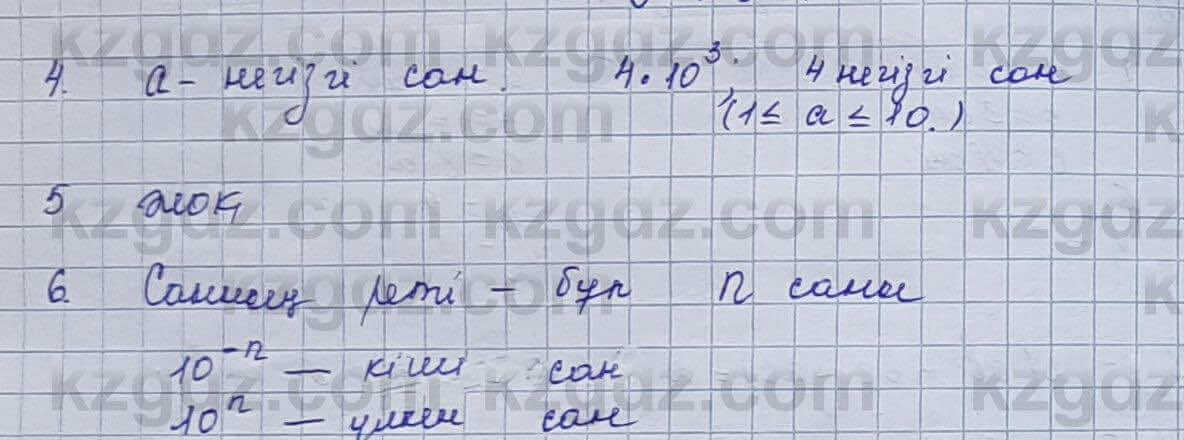 4. a - негізгі сан. 4·10³; 4 негізгі сан
(1 ≤ a ≤ 10.)
5 жоқ
6. Санның реті - бұл n саны
10⁻ⁿ — кіші сан
10ⁿ — үлкен сан
kzgdz.com kzgdz.com kzgdz
kzgdz.com kzgdz.com k
kzgdz.com kzgdz.com kzgdz
kzgdz.com kzgdz.com k
kzgdz.com kzgdz.com kzgdz